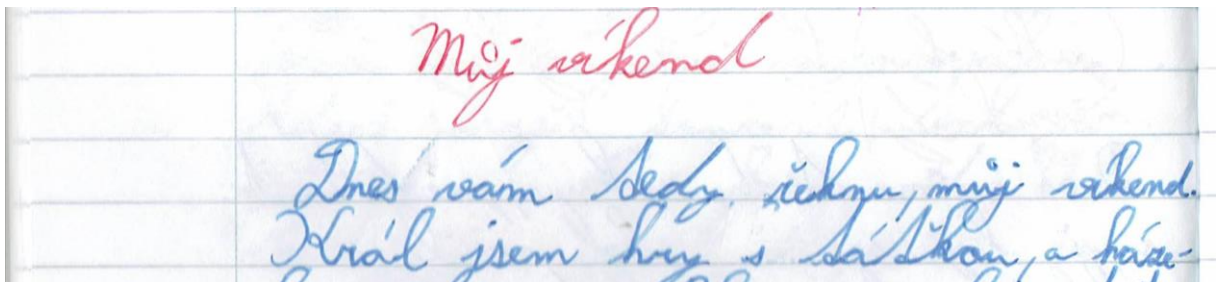 Můj víkend
Dnes vám tedy řeknu, můj víkend.
Král jsem hry s táťkou, a háze-